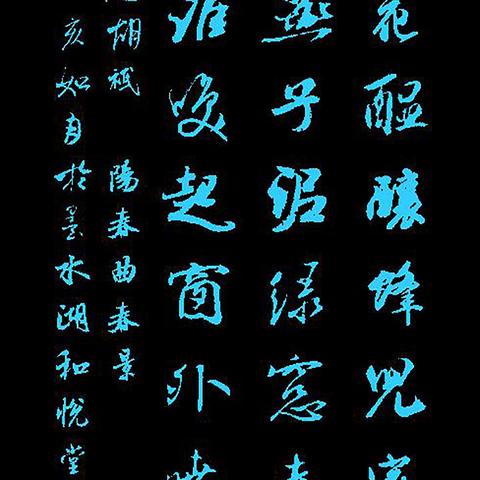 花醖釀蜂兒蜜
燕子泥綠窓春
誰唤起窗外曉
胡祗 陽春曲春景
亥如月於墨水湖和悅堂